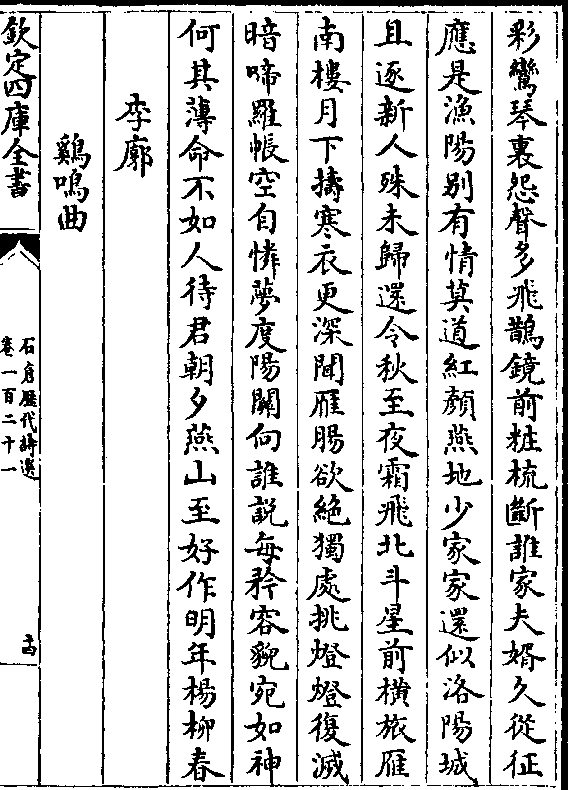 彩鸞琴裏怨聲多飛鵲鏡前粧梳斷誰家夫婿久從征
應是漁陽别有情莫道紅顔燕地少家家還似洛陽城
且逐新人殊未歸還令秋至夜霜飛北斗星前横旅雁
南樓月下擣寒衣更深聞雁腸欲絶獨處挑燈燈復滅
暗啼羅帳空自憐夢度陽關向誰説每矜容貌宛如神
何其薄命不如人待君朝夕燕山至好作明年楊柳春
李廓
鷄鳴曲
欽定四庫全書
石倉歷代詩選
卷一百二十一
十四